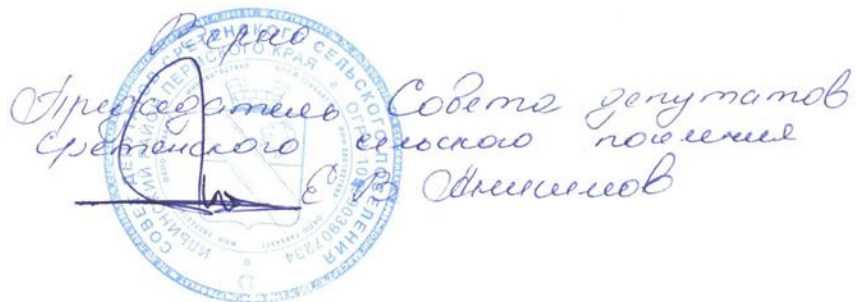 Верно
Председатель Совета депутатов
Сретенского сельского поселения
Е В Анисимов
СОВЕТ ДЕПУТАТОВ СРЕТЕНСКОГО СЕЛЬСКОГО ПОСЕЛЕНИЯ
ИЛЬИНСКИЙ РАЙОН ПЕРМСКОГО КРАЯ